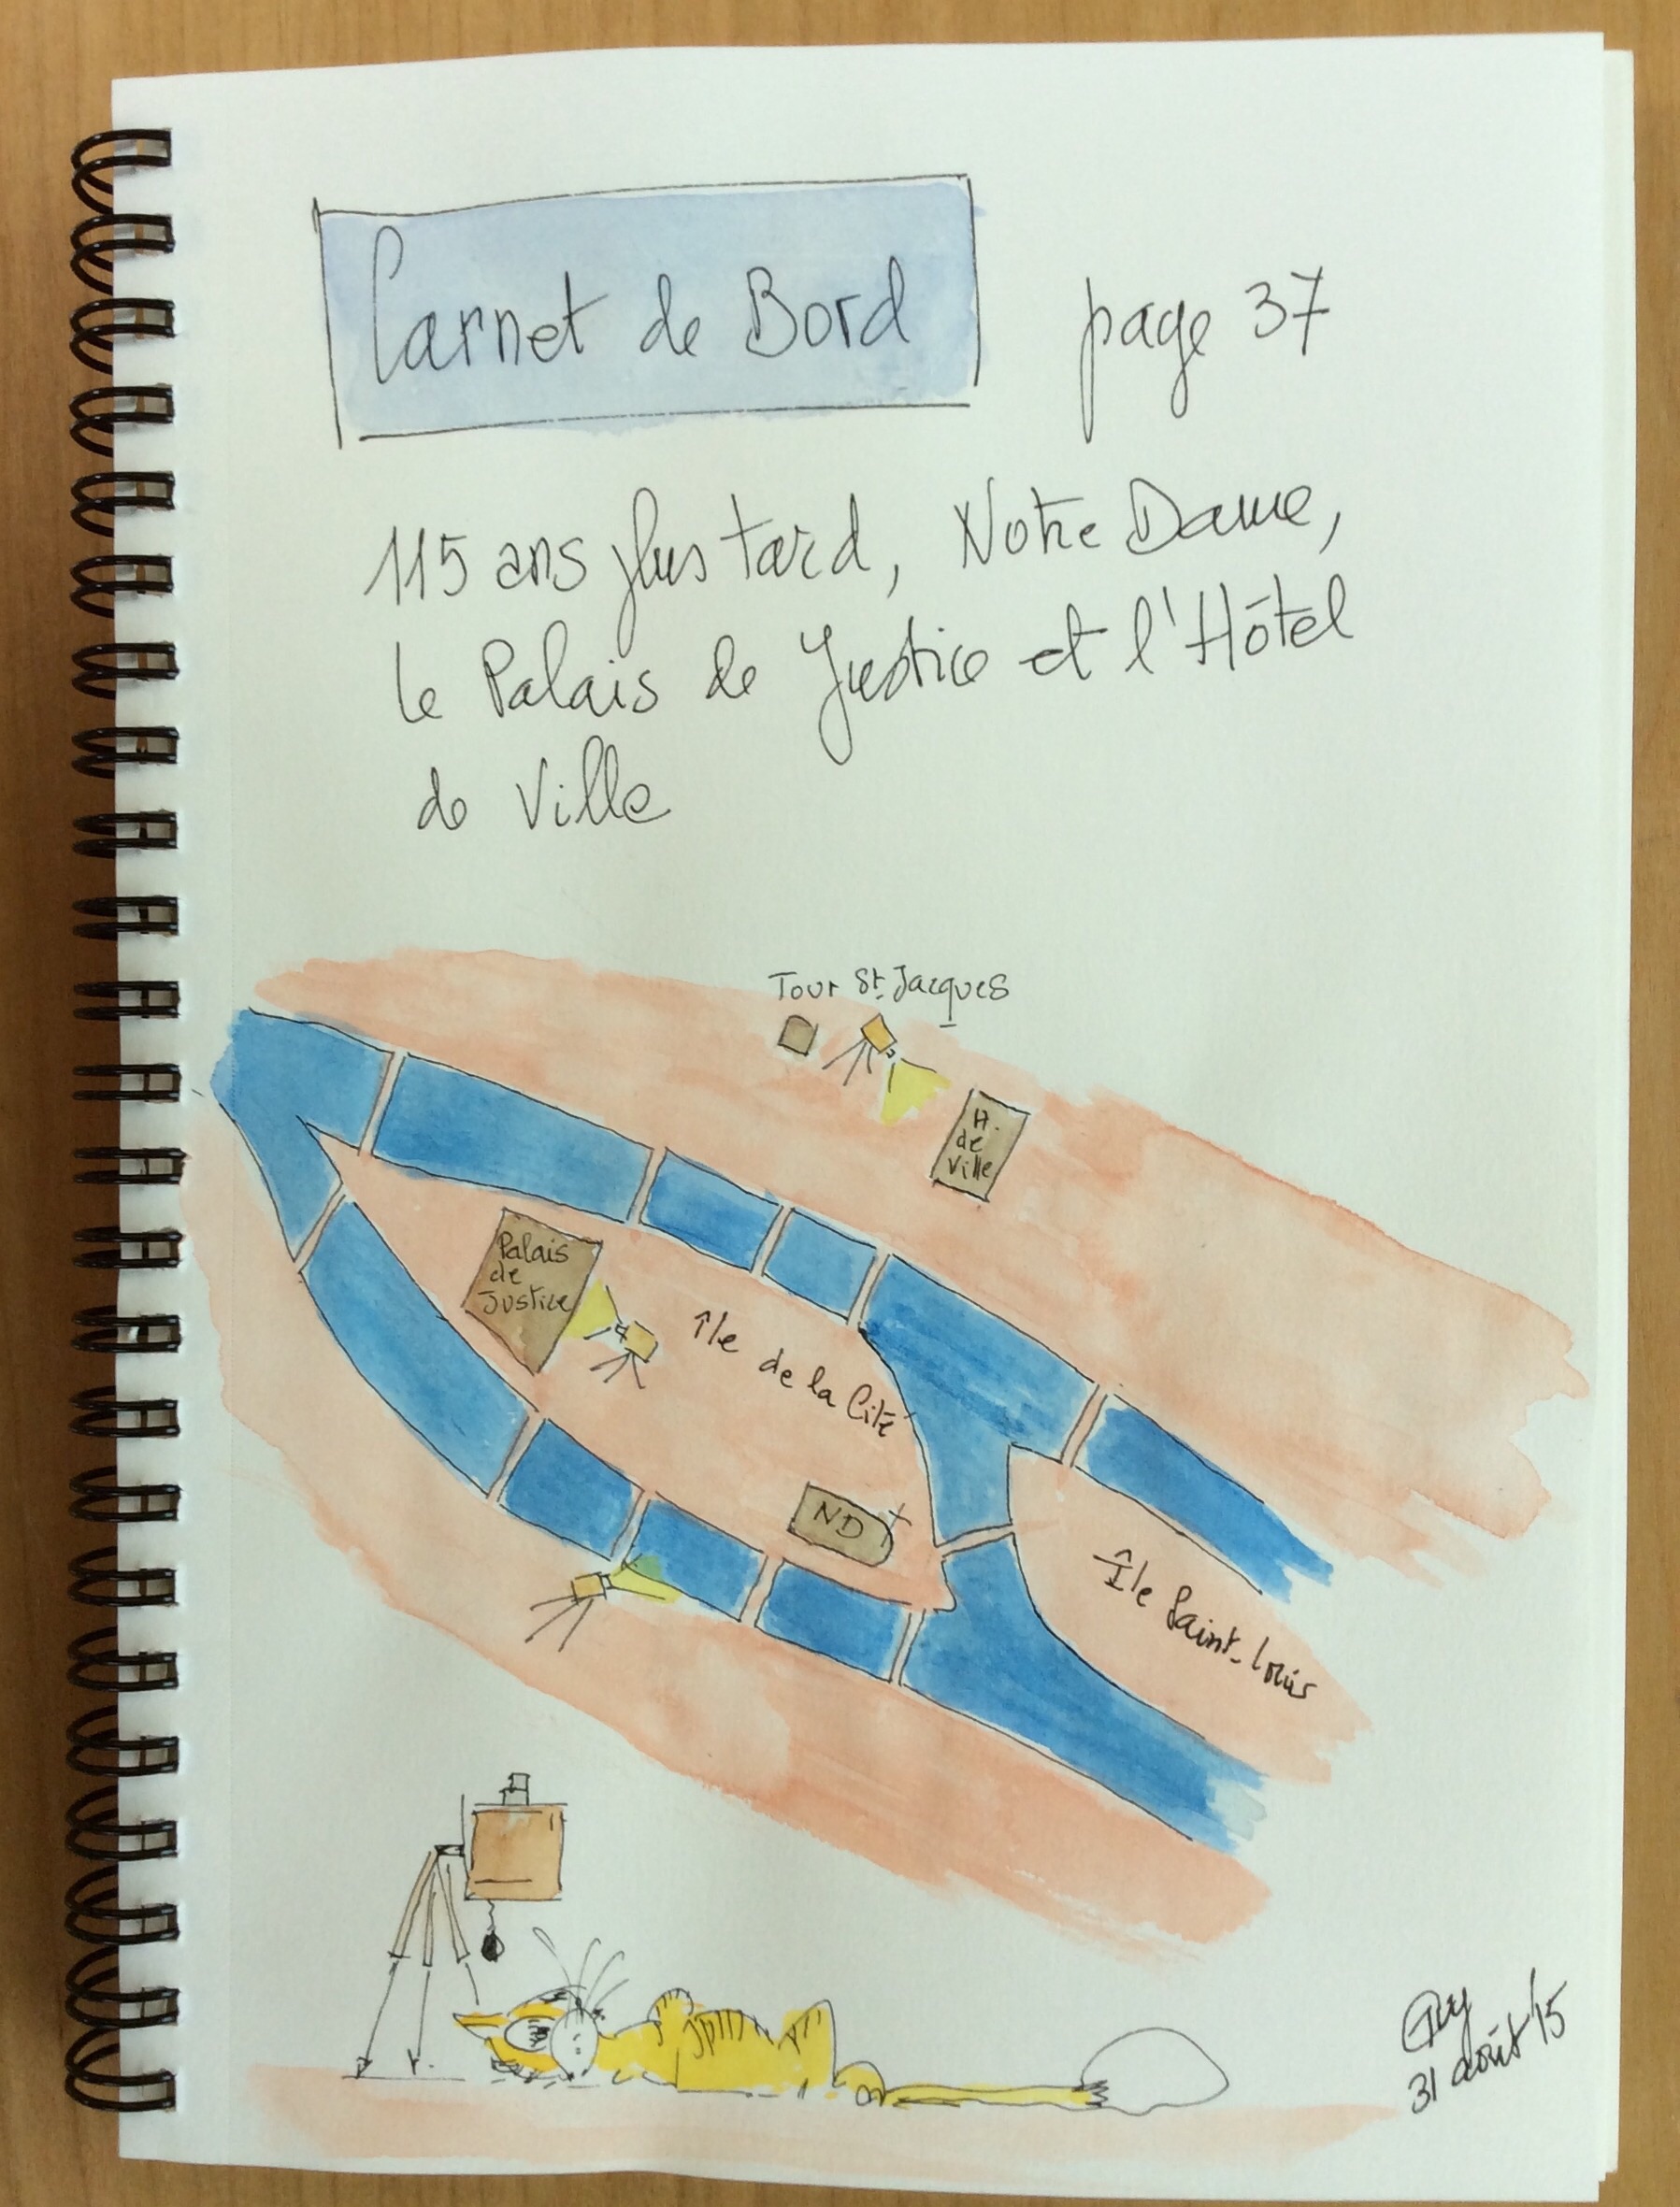 Carnet de Bord page 37
115 ans plus tard, Notre Dame,
le Palais de Justice et l'Hôtel
de Ville
Tour St Jacques
H.
de
Ville
Palais
de
Justice
île de la Cité
ND
Île Saint-Louis
Guy
31 août 15